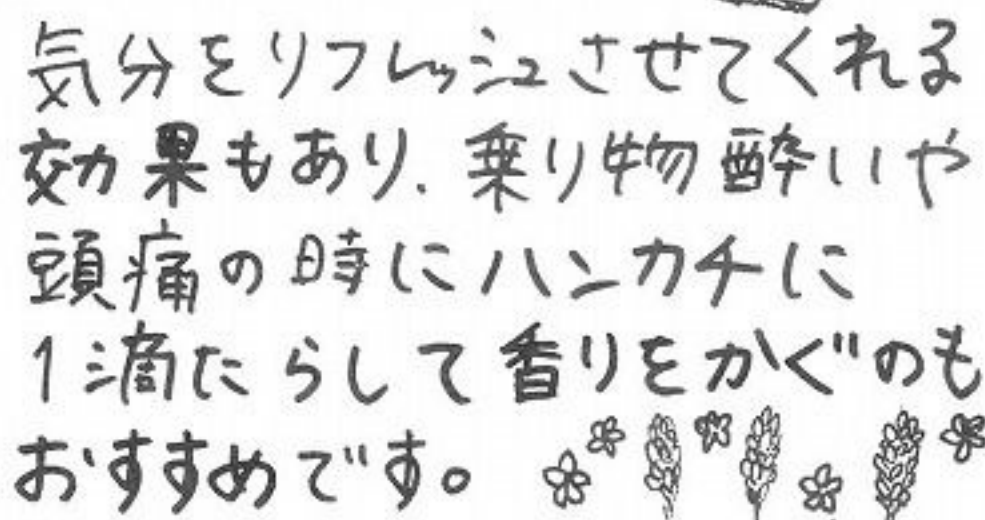 気分をリフレッシュさせてくれる
効果もあり、乗り物酔いや
頭痛の時にハンカチに
1滴たらして香りをかぐのも
おすすめです。